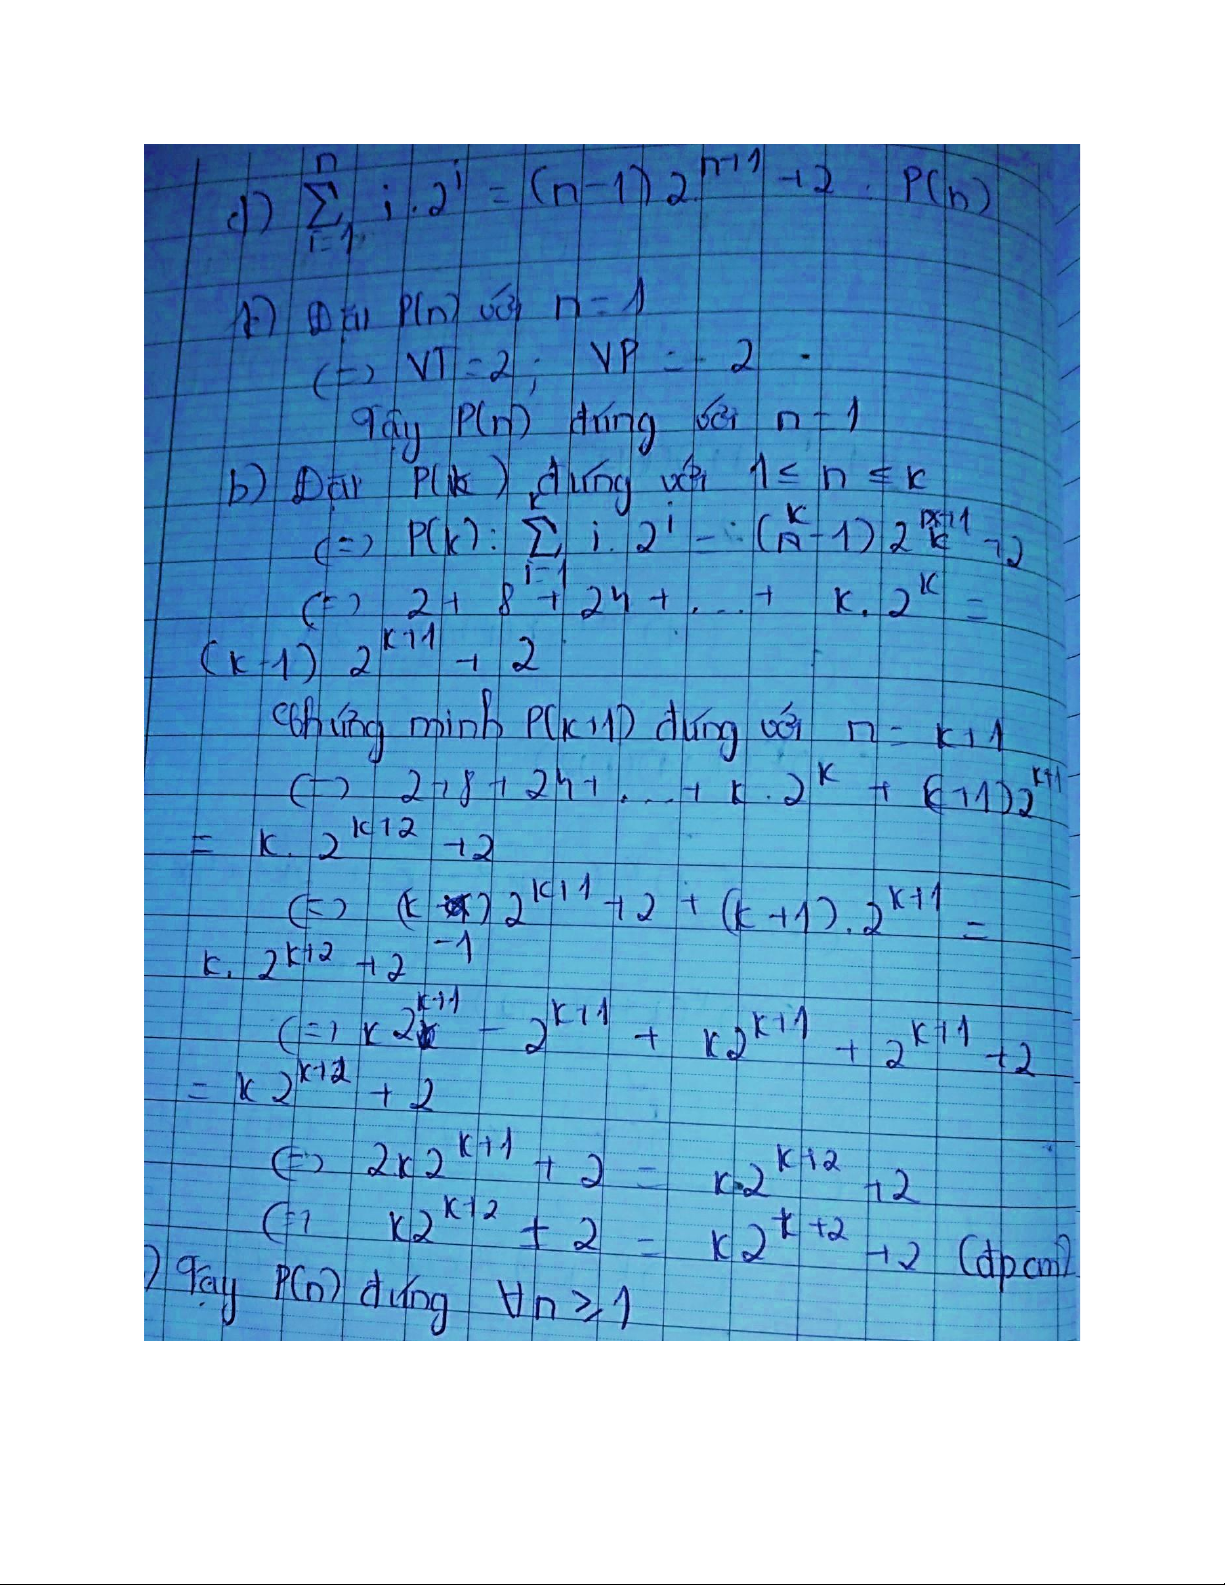 d) n ∑ i=1 i.2^i = (n-1)2^{n+1} +2. P(n)
a) Đặt P(n) với n = 1
(=) VT = 2; VP = 2
Vậy P(n) đúng với n = 1
b) Đặt P(k) đúng với 1 ≤ n ≤ k
(=) P(k): k ∑ i=1 i.2^i = (k-1) 2^{k+1} +2
(=) 2 + 8 + 24 + .... + k.2^k =
(k-1) 2^{k+1} + 2
Chứng minh P(k+1) đúng với n = k+1
(=) 2+8+24+....+ k.2^k + (k+1)2^{k+1}
= k.2^{k+2} +2
(=) (k-1)2^{k+1} +2 + (k+1).2^{k+1} =
k.2^{k+2} +2
(=) k2^{k+1} - 2^{k+1} + k2^{k+1} + 2^{k+1} +2
= k2^{k+2} + 2
(=) 2k2^{k+1} + 2 = k.2^{k+2} +2
(=) k2^{k+2} + 2 = k2^{k+2} +2 (đpcm)
) Vậy P(n) đúng ∀n ≥ 1